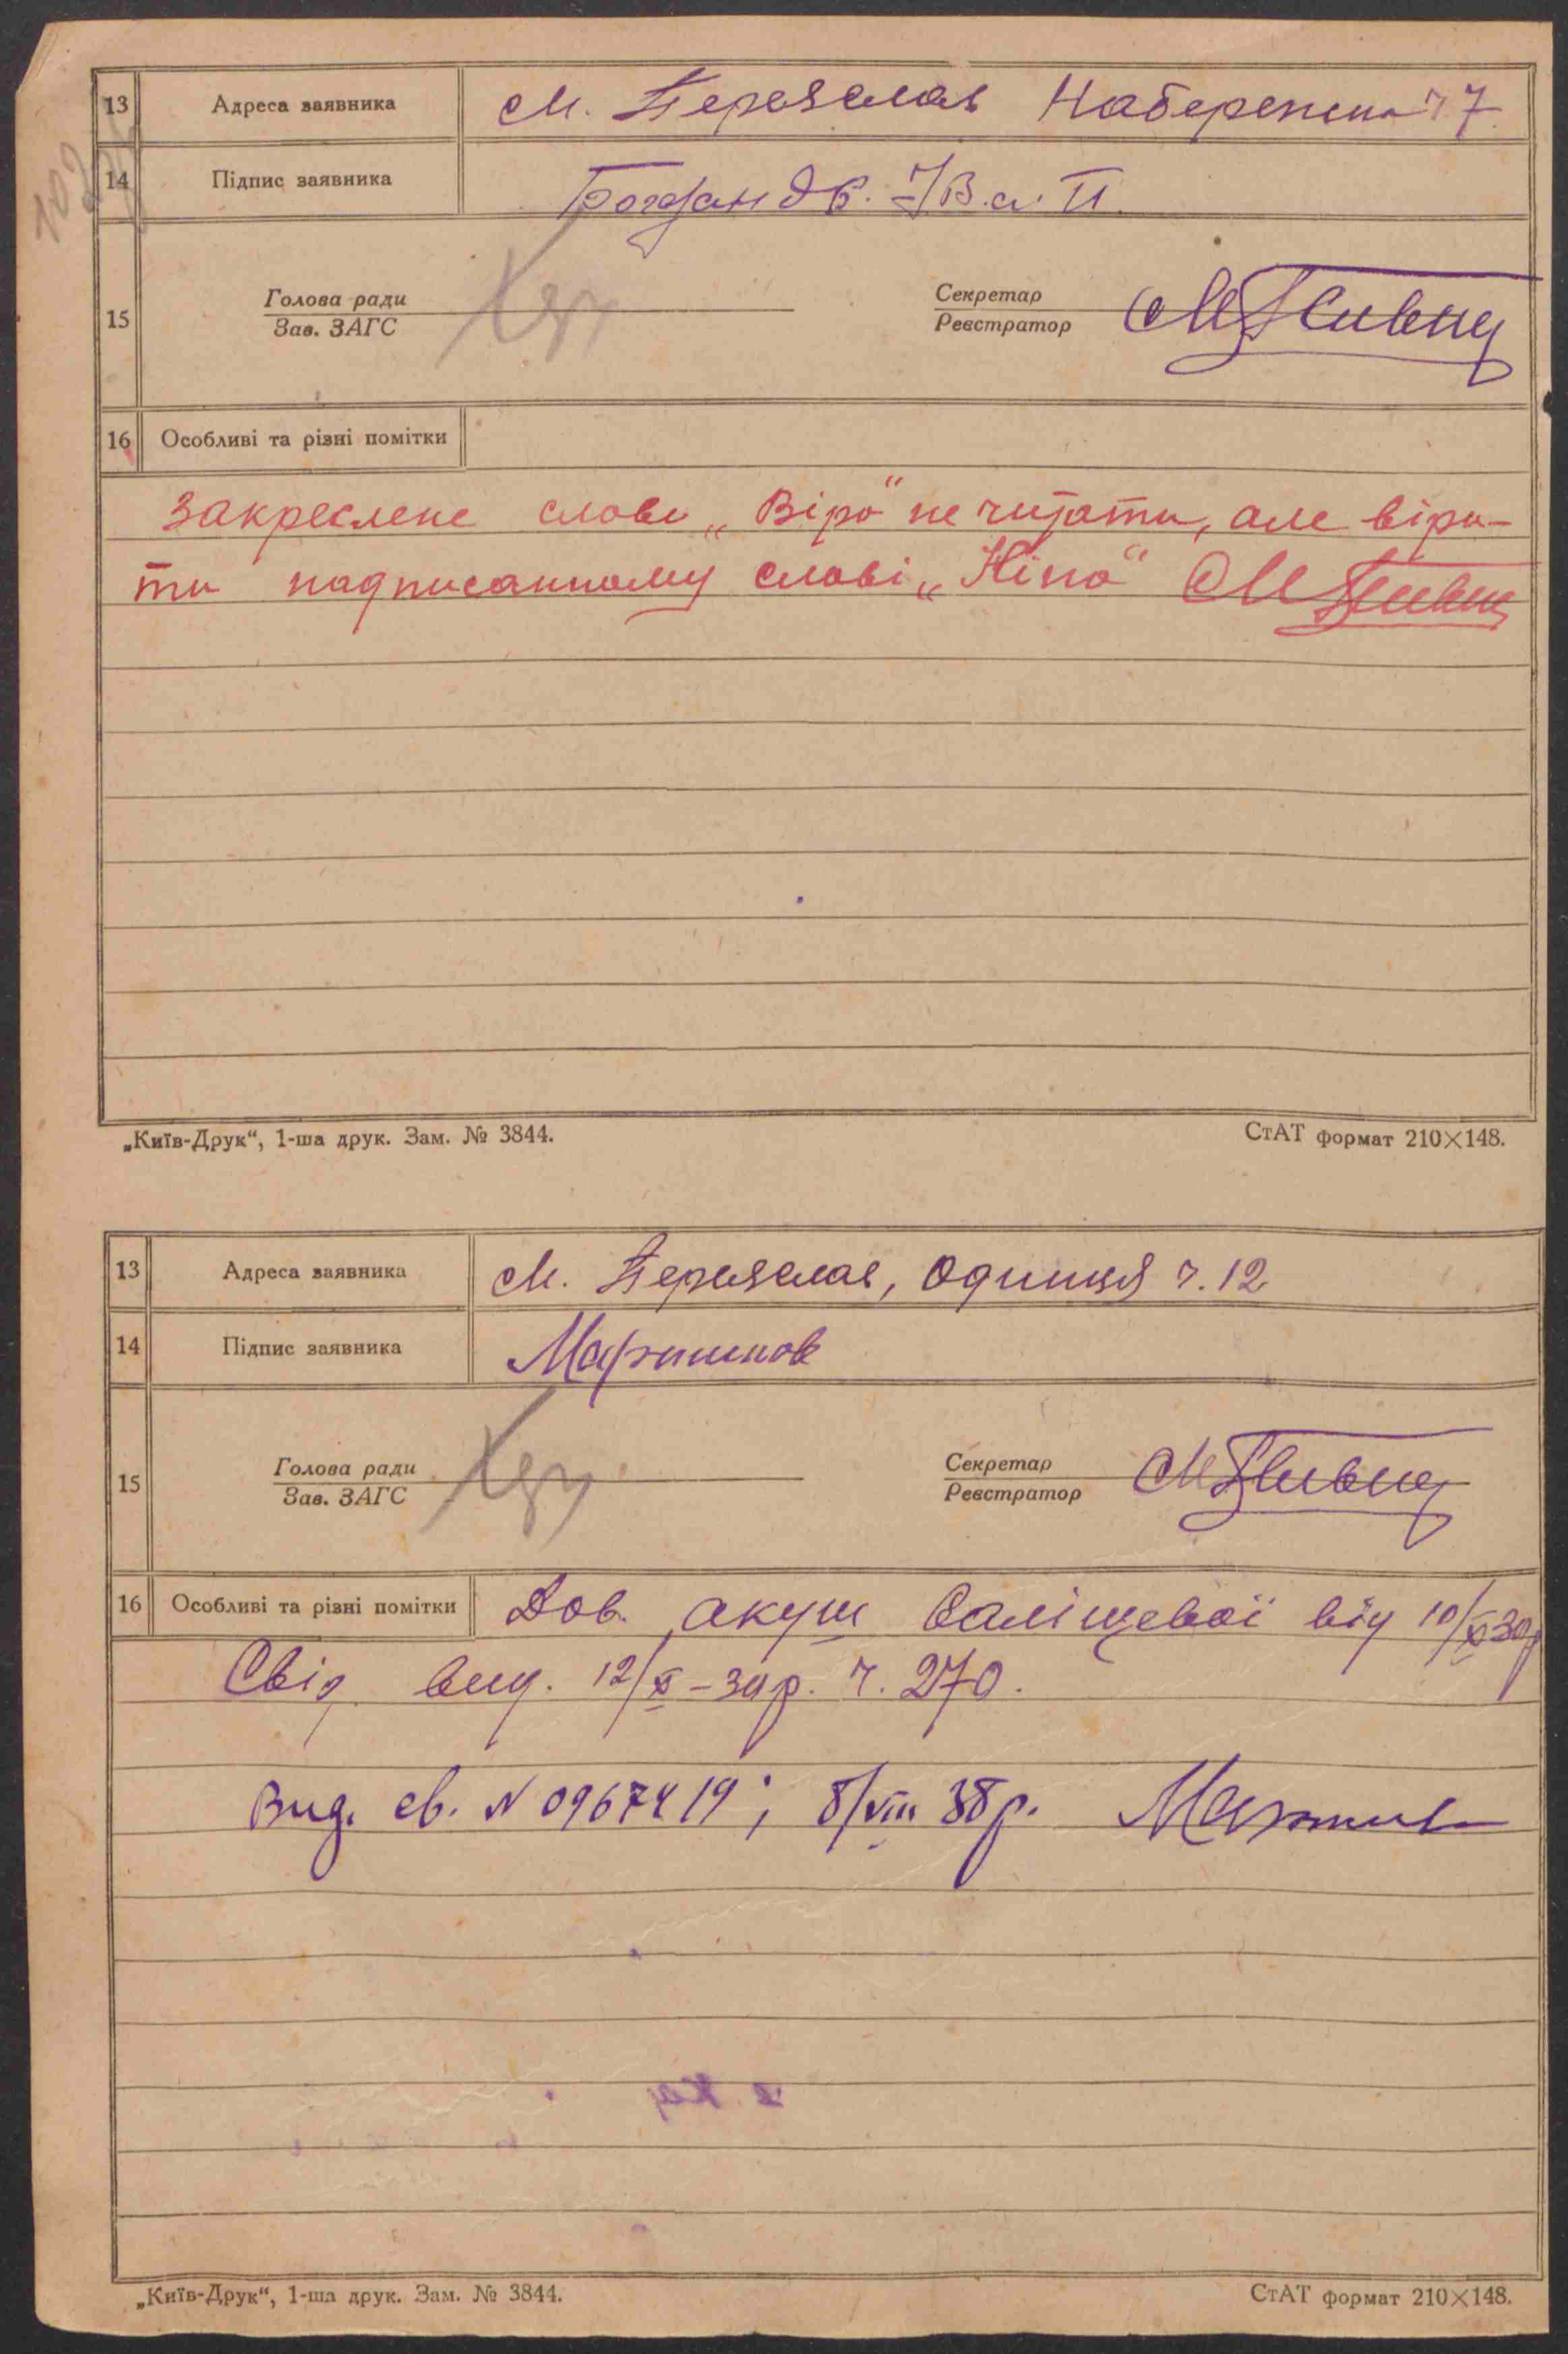 13 Адреса заявника м. Переяслав Набережна ч 7
14 Підпис заявника
15 Голова ради Секретар
Зав. ЗАГС Реєстратор
16 Особливі та різні помітки
Закреслене слово „Віра“ не читати, але віри-
ти надписанному слові „Ніна“
„Київ-Друк“, 1-ша друк. Зам. № 3844. СтАТ формат 210×148.
13 Адреса заявника м. Переяслав, Одиниця ч. 12
14 Підпис заявника
15 Голова ради Секретар
Зав. ЗАГС Реєстратор
16 Особливі та різні помітки Дов. акуш від 10/X 30р
Свід. вид. 12/X-30р. ч. 270.
Вид. св. N 0967419; 8/VIII 38р.
„Київ-Друк“, 1-ша друк. Зам. № 3844. СтАТ формат 210×148.